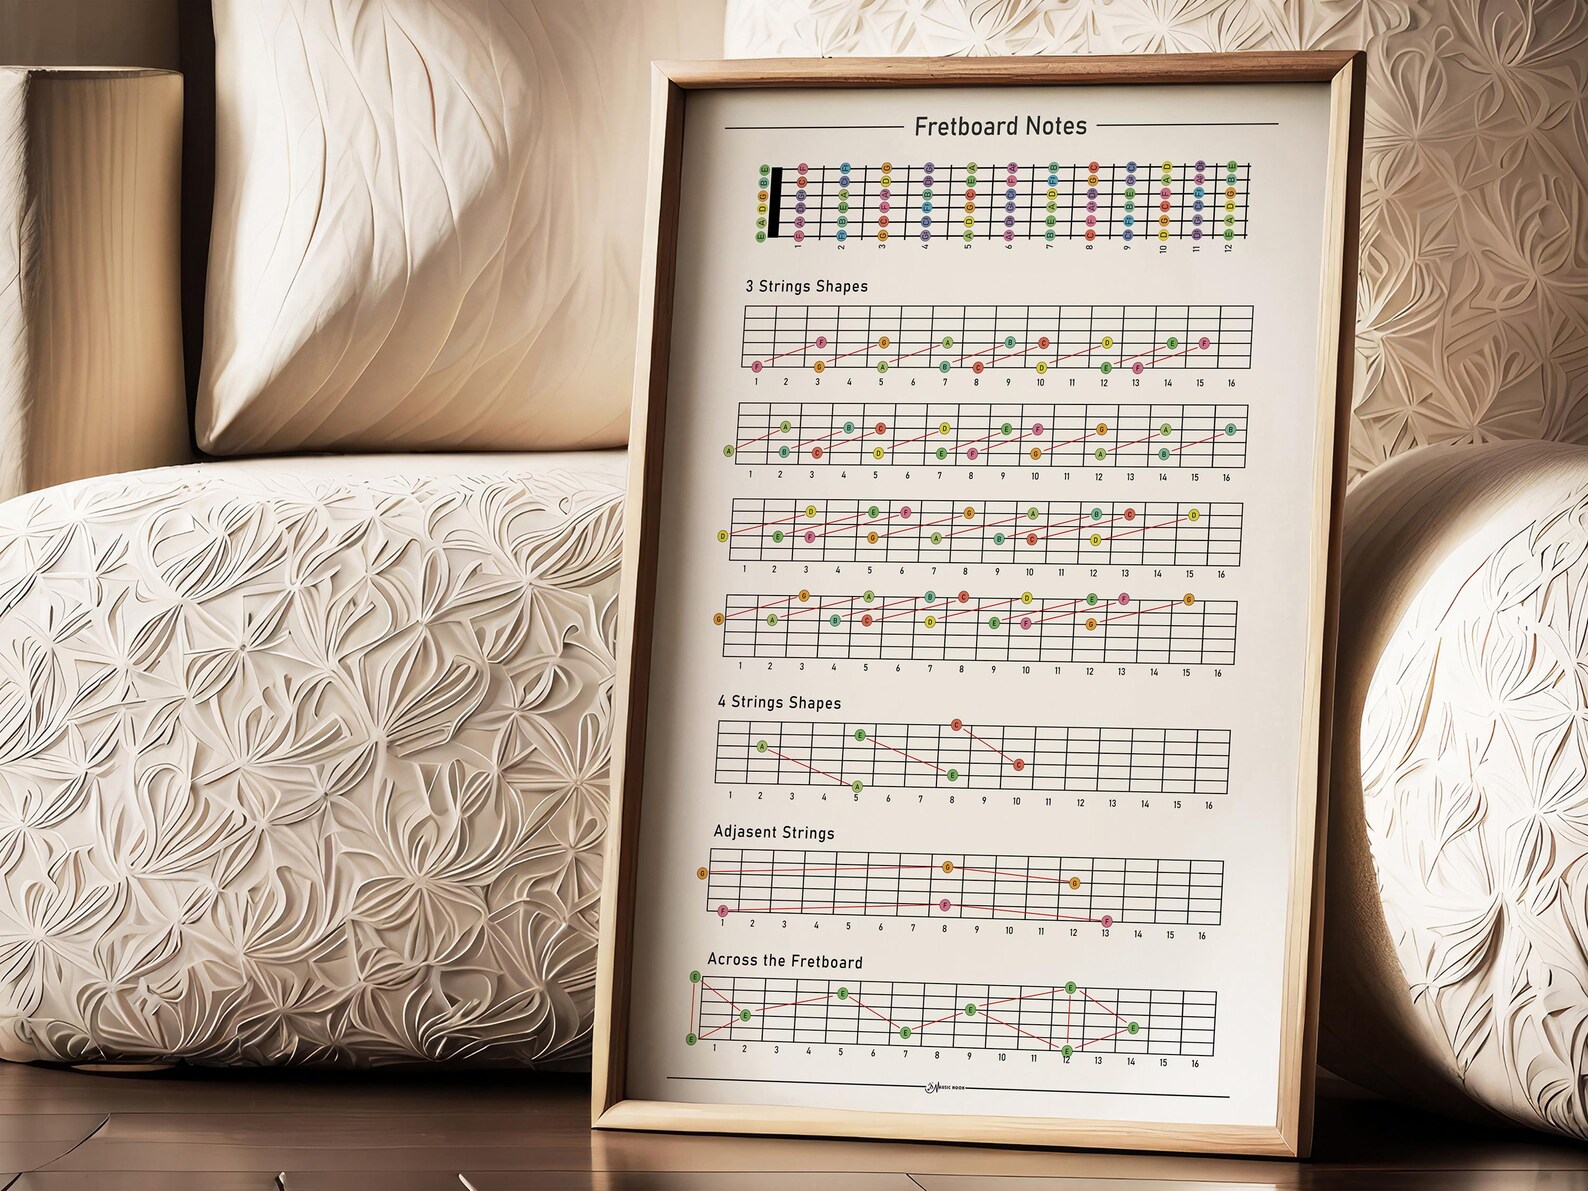 Fretboard Notes
E
B
G
D
A
E
1 2 3 4 5 6 7 8 9 10 11 12
3 Strings Shapes
F G A B C D E F
F G A B C D E F
1 2 3 4 5 6 7 8 9 10 11 12 13 14 15 16
A B C D E F G A B
A B C D E F G A B
1 2 3 4 5 6 7 8 9 10 11 12 13 14 15 16
D E F G A B C D
D E F G A B C D
1 2 3 4 5 6 7 8 9 10 11 12 13 14 15 16
G A B C D E F G
G A B C D E F G
1 2 3 4 5 6 7 8 9 10 11 12 13 14 15 16
4 Strings Shapes
C
E
A
C
E
A
1 2 3 4 5 6 7 8 9 10 11 12 13 14 15 16
Adjasent Strings
G
G G
F
F F
1 2 3 4 5 6 7 8 9 10 11 12 13 14 15 16
Across the Fretboard
E E
E E
E E
E
E E
1 2 3 4 5 6 7 8 9 10 11 12 13 14 15 16
MUSIC NOOK